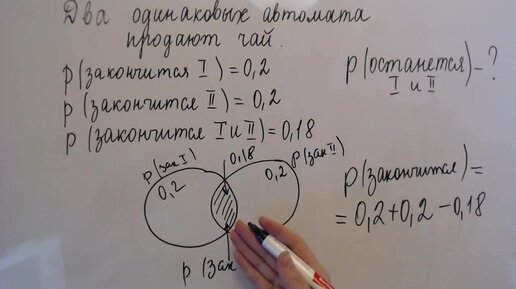 Два одинаковых автомата
продают чай.
p(закончится I) = 0,2
p(закончится II) = 0,2
p(закончится I и II) = 0,18
p(останется) - ?
I и II
p(зак I)
0,2
0,18
p(зак II)
0,2
p(зак
p(закончится) =
= 0,2 + 0,2 - 0,18